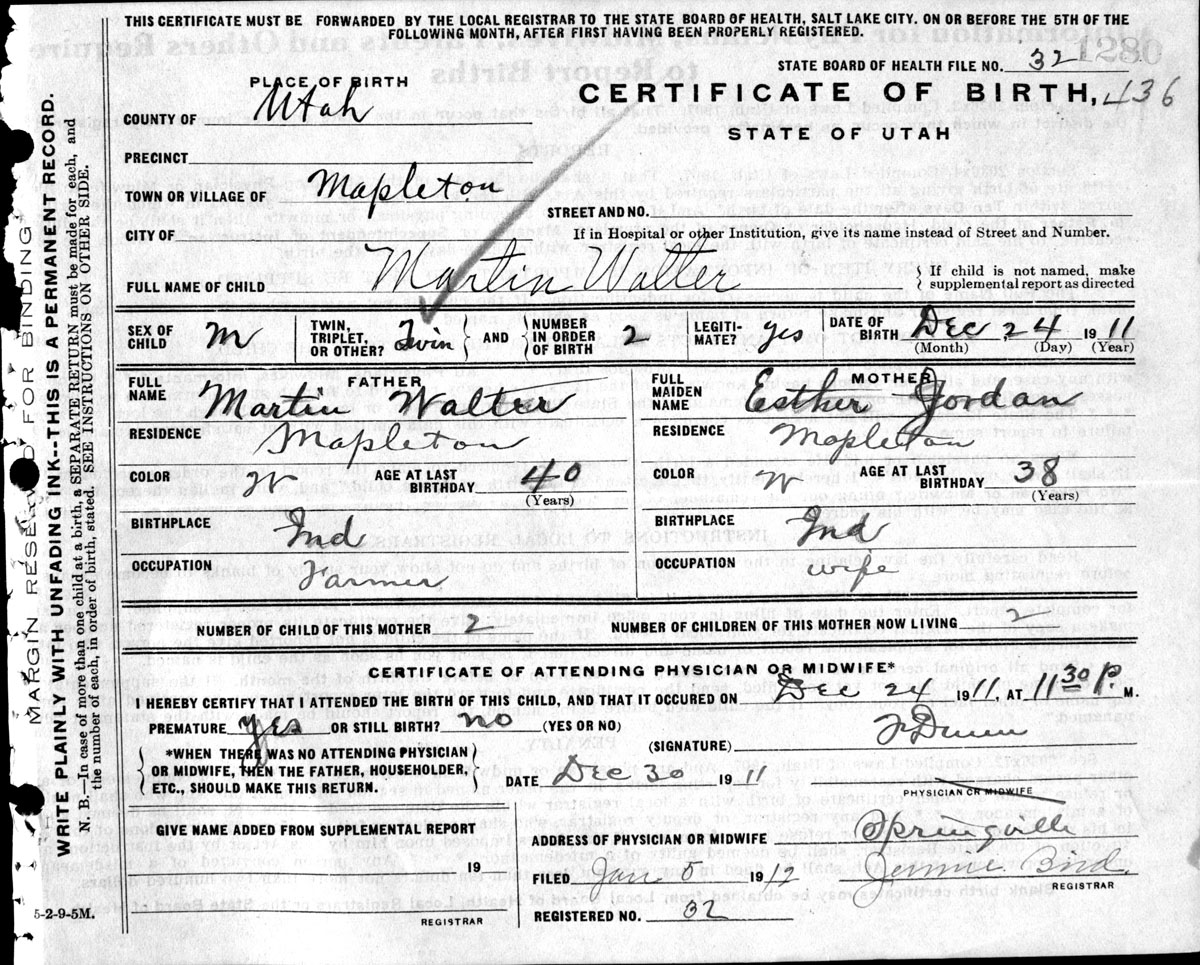 THIS CERTIFICATE MUST BE FORWARDED BY THE LOCAL REGISTRAR TO THE STATE BOARD OF HEALTH, SALT LAKE CITY. ON OR BEFORE THE 5TH OF THE
FOLLOWING MONTH, AFTER FIRST HAVING BEEN PROPERLY REGISTERED.
STATE BOARD OF HEALTH FILE NO. 32
PLACE OF BIRTH
CERTIFICATE OF BIRTH, 436
COUNTY OF Utah
STATE OF UTAH
PRECINCT
TOWN OR VILLAGE OF Mapleton
STREET AND NO.
CITY OF
If in Hospital or other Institution, give its name instead of Street and Number.
FULL NAME OF CHILD Martin Walter
{ If child is not named, make
supplemental report as directed
SEX OF CHILD M TWIN, TRIPLET, OR OTHER? Twin AND NUMBER IN ORDER OF BIRTH 2 LEGITI-MATE? yes DATE OF BIRTH Dec 24 1911
(Month) (Day) (Year)
FATHER
FULL NAME Martin Walter
RESIDENCE Mapleton
COLOR W AGE AT LAST BIRTHDAY 40
(Years)
BIRTHPLACE Ind
OCCUPATION Farmer
MOTHER
FULL MAIDEN NAME Esther Jordan
RESIDENCE Mapleton
COLOR W AGE AT LAST BIRTHDAY 38
(Years)
BIRTHPLACE Ind
OCCUPATION wife
NUMBER OF CHILD OF THIS MOTHER 2 NUMBER OF CHILDREN OF THIS MOTHER NOW LIVING 2
CERTIFICATE OF ATTENDING PHYSICIAN OR MIDWIFE*
I HEREBY CERTIFY THAT I ATTENDED THE BIRTH OF THIS CHILD, AND THAT IT OCCURED ON Dec 24 1911, AT 11 30 P. M.
PREMATURE Yes OR STILL BIRTH? no (YES OR NO)
(SIGNATURE) F Dunn
*WHEN THERE WAS NO ATTENDING PHYSICIAN
OR MIDWIFE, THEN THE FATHER, HOUSEHOLDER,
ETC., SHOULD MAKE THIS RETURN.
DATE Dec 30 1911
PHYSICIAN OR MIDWIFE
GIVE NAME ADDED FROM SUPPLEMENTAL REPORT
19
REGISTRAR
ADDRESS OF PHYSICIAN OR MIDWIFE Springville
FILED Jan 5 1912 Jennie
REGISTRAR
REGISTERED NO. 32
5-2-9-5M.
MARGIN RESERVED FOR BINDING
WRITE PLAINLY WITH UNFADING INK--THIS IS A PERMANENT RECORD.
N. B.—In case of more than one child at a birth, a SEPARATE RETURN must be made for each, and
the number of each, in order of birth, stated. SEE INSTRUCTIONS ON OTHER SIDE.